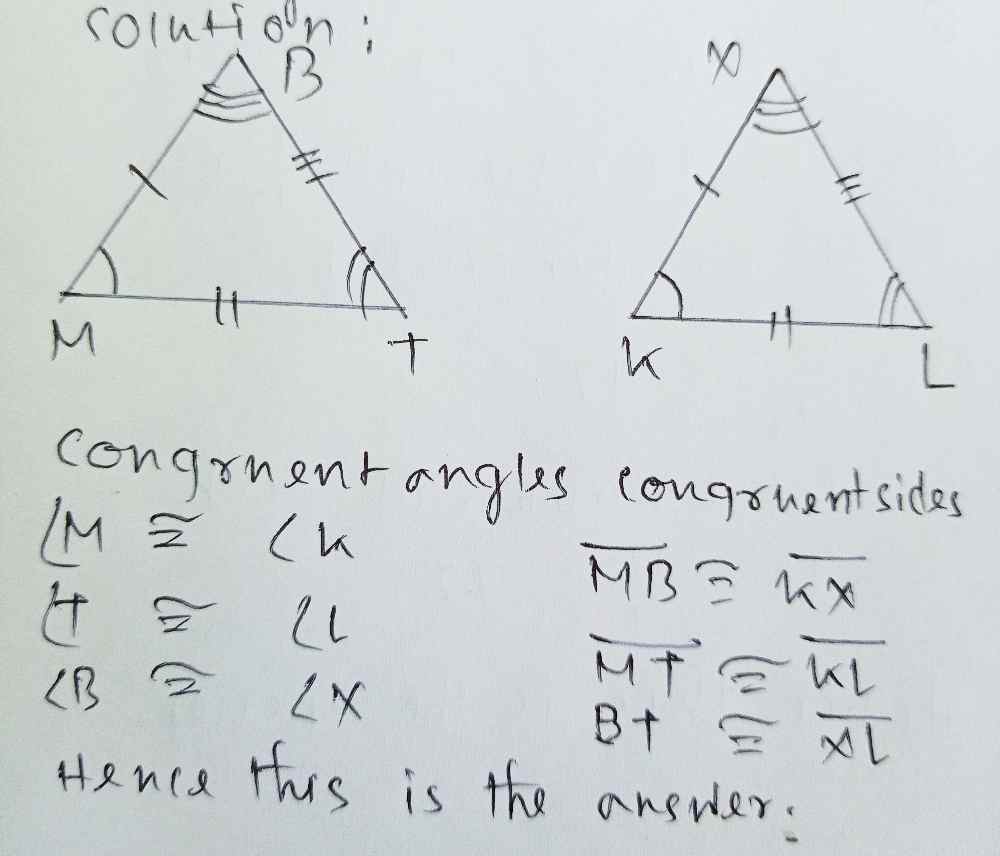 solution:
B
X
M
T
K
L
congruent angles congruent sides
∠M ≅ ∠K
M̅B̅ ≅ K̅X̅
∠T ≅ ∠L
M̅T̅ ≅ K̅L̅
∠B ≅ ∠X
BT ≅ X̅L̅
Hence this is the answer.